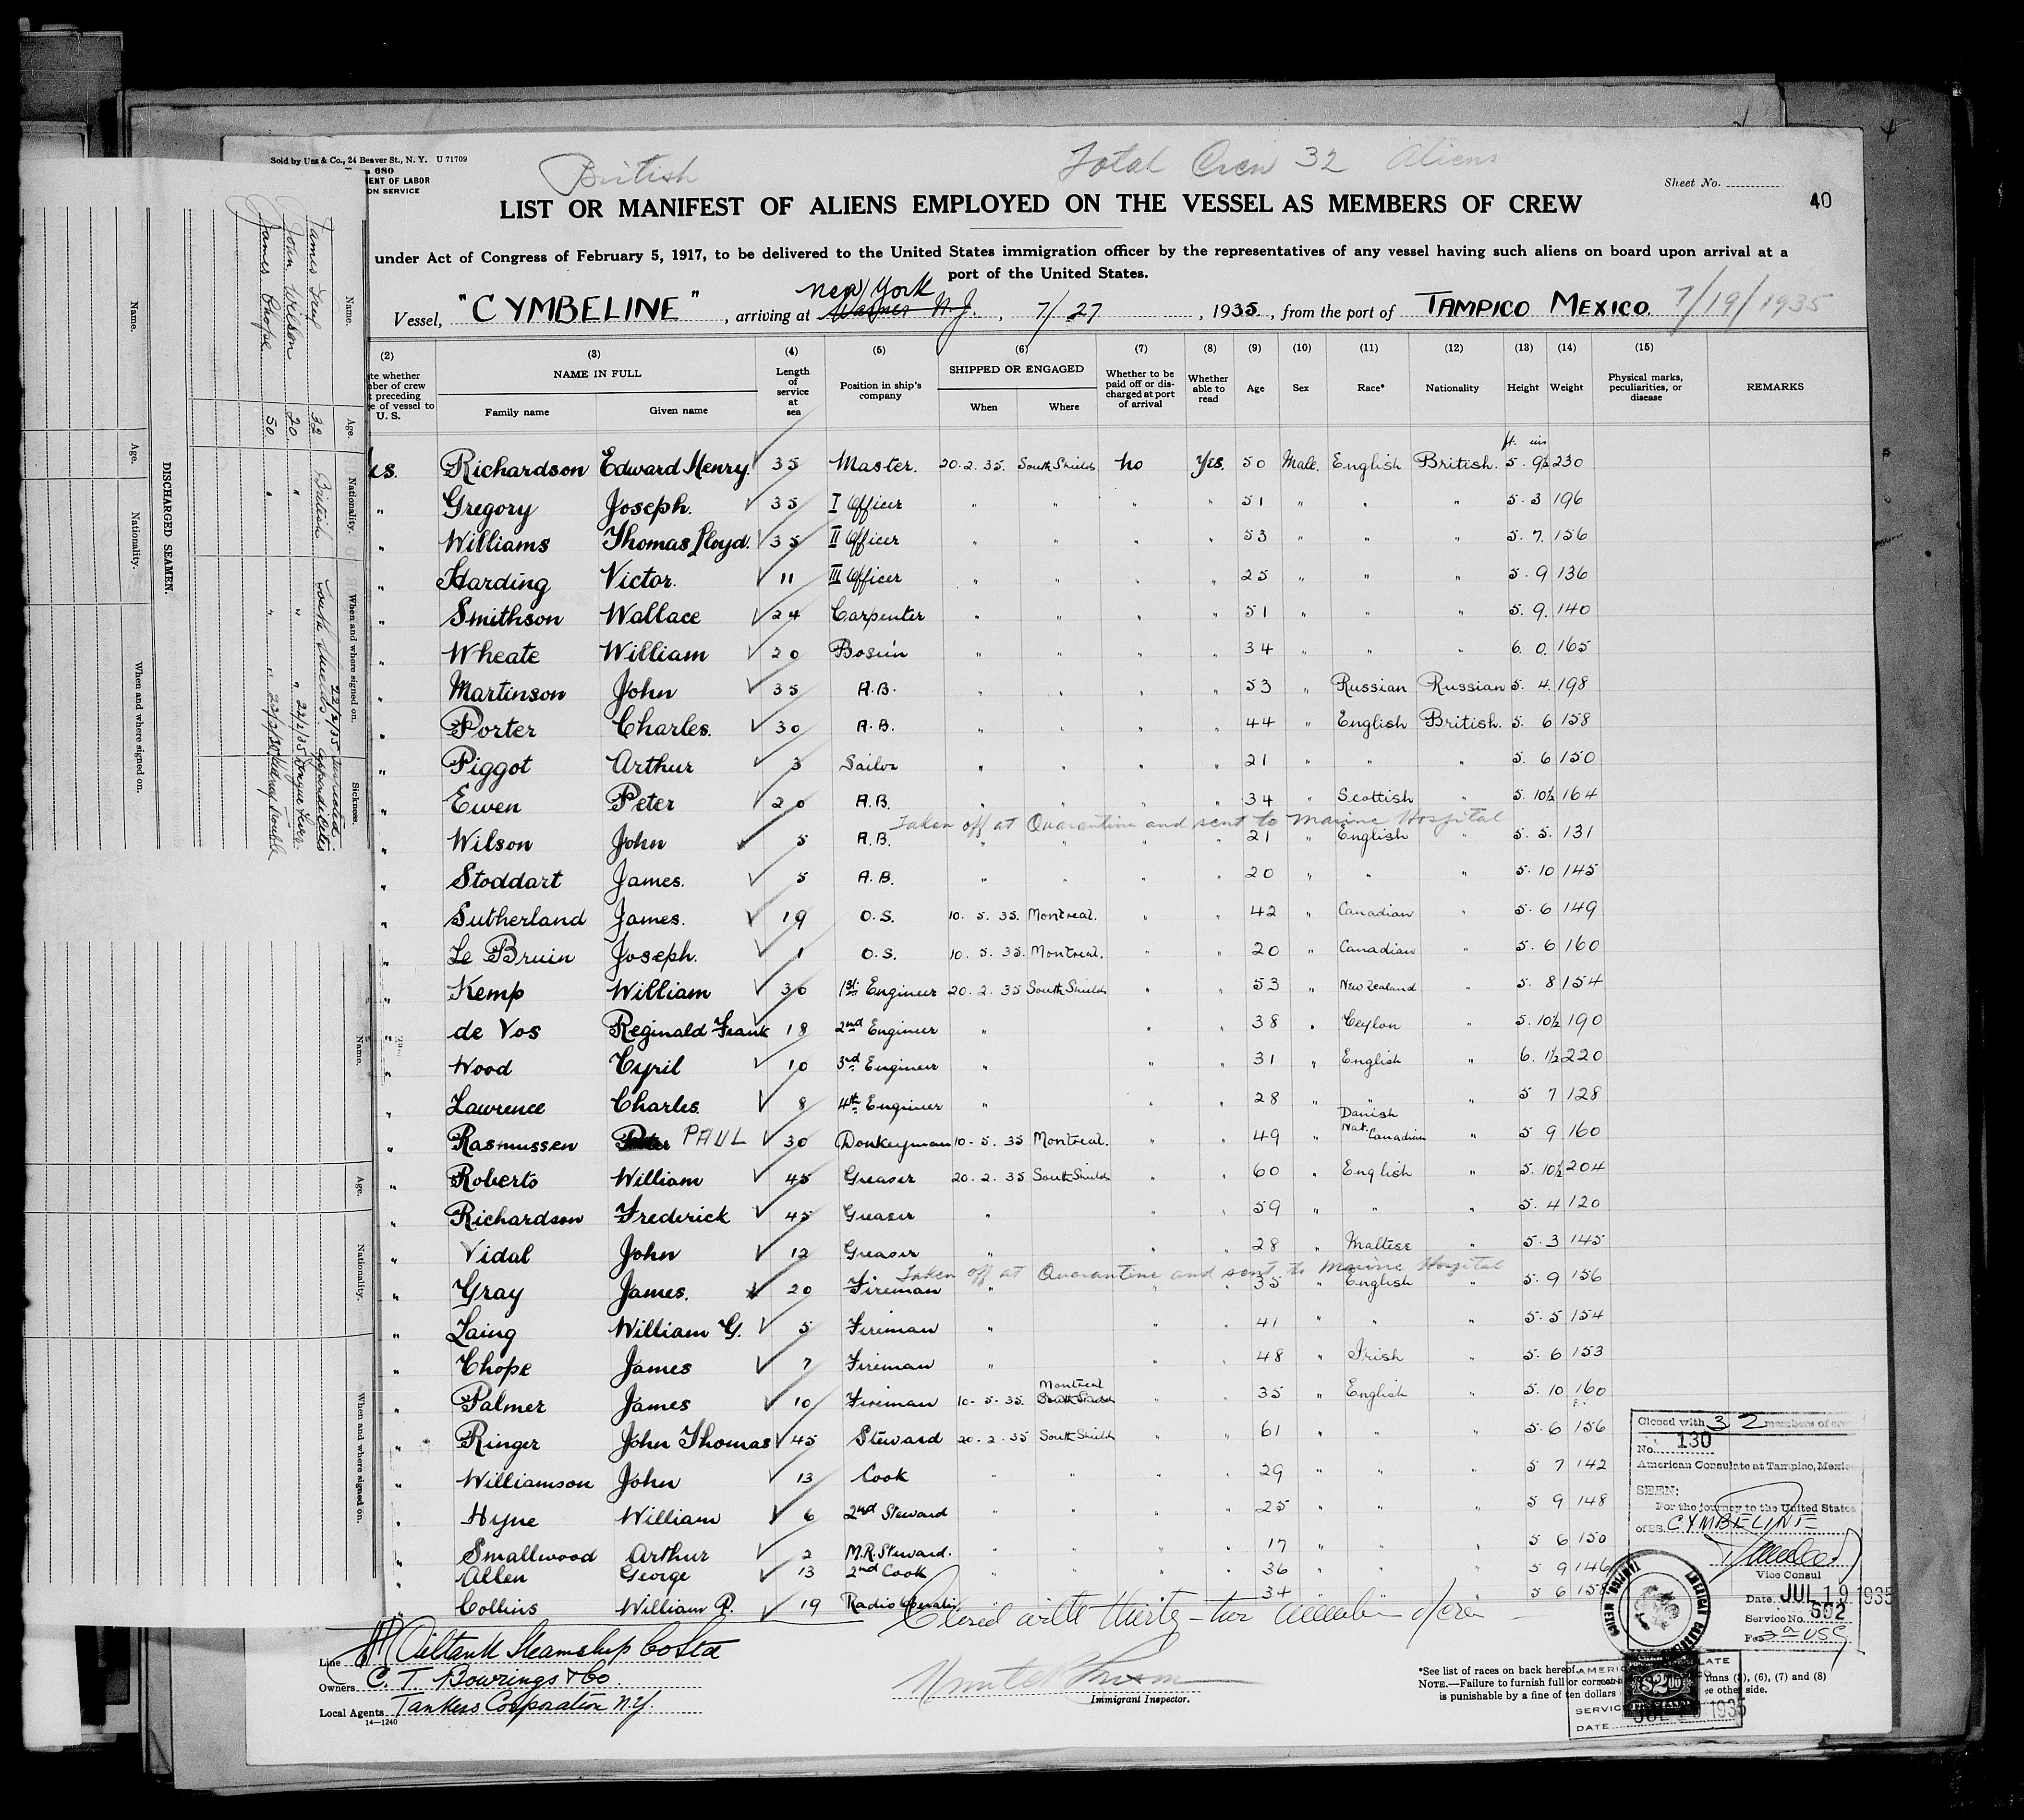 Sold by Unz & Co., 24 Beaver St., N. Y. U 71709
680
ENT OF LABOR
ON SERVICE
British
Total Crew 32 Aliens
Sheet No.
40
LIST OR MANIFEST OF ALIENS EMPLOYED ON THE VESSEL AS MEMBERS OF CREW
under Act of Congress of February 5, 1917, to be delivered to the United States immigration officer by the representatives of any vessel having such aliens on board upon arrival at a
port of the United States.
New York
Vessel, "CYMBELINE", arriving at Wagner N.J., 7/27, 1935, from the port of TAMPICO MEXICO. 7/19/1935
(2) (3) (4) (5) (6) (7) (8) (9) (10) (11) (12) (13) (14) (15)
te whether
ber of crew
t preceding
e of vessel to
U. S.
NAME IN FULL
Family name Given name
Length
of
service
at
sea
Position in ship's
company
SHIPPED OR ENGAGED
When Where
Whether to be
paid off or dis-
charged at port
of arrival
Whether
able to
read
Age Sex Race* Nationality Height Weight
Physical marks,
peculiarities, or
disease
REMARKS
ft. ins
es. Richardson Edward Henry. 35 Master. 20.2.35. South Shields no Yes. 50 Male. English British. 5. 9½ 230
" Gregory Joseph. 35 I Officer " " " " 51 " " " 5. 3 196
" Williams Thomas Lloyd. 35 II Officer " " " " 53 " " " 5. 7. 156
" Harding Victor. 11 III Officer " " " " 25 " " " 5. 9 136
" Smithson Wallace 24 Carpenter " " " " 51 " " " 5. 9. 140
" Wheate William 20 Bosun " " " " 34 " " " 6. 0. 165
" Martinson John 35 A.B. " " " " 53 " Russian Russian 5. 4. 198
" Porter Charles. 30 A.B. " " " " 44 " English British. 5. 6 158
" Piggot Arthur 3 Sailor " " " " 21 " " " 5. 6 150
" Ewen Peter 20 A.B. " " " " 34 " Scottish " 5. 10½ 164
Taken off at Quarantine and sent to Marine Hospital
" Wilson John 5 A.B. " " " " 21 " English " 5. 5. 131
" Stoddart James. 5 A.B. " " " " 20 " " " 5. 10 145
" Sutherland James. 19 O.S. 10. 5. 35. Montreal. " " 42 " Canadian " 5. 6 149
" Le Bruin Joseph. 1 O.S. 10. 5. 35. Montreal. " " 20 " Canadian " 5. 6 160
" Kemp William 30 1st Engineer 20. 2. 35 South Shields " " 53 " New Zealand " 5. 8 154
" de Vos Reginald Frank 18 2nd Engineer " " " 38 " Ceylon " 5. 10½ 190
" Wood Cyril 10 3rd Engineer " " " 31 " English " 6. 1½ 220
" Lawrence Charles. 8 4th Engineer " " " 28 " " " 5 7 128
Danish
" Rasmussen PAUL 30 Donkeyman 10-5.35 Montreal. " " 49 " Nat. Canadian " 5 9 160
" Roberts William 45 Greaser 20. 2. 35 South Shields " " 60 " English " 5. 10½ 204
" Richardson Frederick 45 Greaser " " " 59 " " " 5. 4 120
" Vidal John 12 Greaser " " " 28 " Maltese " 5. 3 145
Taken off at Quarantine and sent to Marine Hospital
" Gray James. 20 Fireman " " " 35 " English " 5. 9 156
" Laing William G. 5 Fireman " " " 41 " " " 5. 5 154
" Chope James 7 Fireman " " " 48 " Irish " 5. 6 153
Montreal
" Palmer James 10 Fireman 10-5-35. South Shields " " 35 " English " 5. 10 160
" Ringer John Thomas 45 Steward 20. 2. 35 South Shields " " 61 " " " 5. 6 156
" Williamson John 13 Cook " " " " 29 " " " 5 7 142
" Hyne William 6 2nd Steward " " " " 25 " " " 5 9 148
" Smallwood Arthur 2 M.R. Steward. " " " " 17 " " " 5 6 150
" Allen George 13 2nd Cook " " " " 36 " " " 5 9 146
" Collins William P. 19 Radio Operator " " " " 34 " " " 5 6 158
Closed with thirty-two members of crew
Closed with 32 members of crew
No. 130
American Consulate at Tampico, Mexico
SEEN:
For the journey to the United States
of SS. CYMBELINE
Vice Consul
Date JUL 19 1935
Service No. 592
Fee
Line Oiltank Steamship Co Ltd
Owners C. T. Bowrings & Co.
Local Agents Tankers Corporation N.Y.
14—1240
Immigrant Inspector.
*See list of races on back hereof.
NOTE.—Failure to furnish full or correct
mns (3), (6), (7) and (8)
is punishable by a fine of ten dollars
e other side.
$2.00
SERVICE
DATE
1935
DISCHARGED SEAMEN.
Name. Age. Nationality. When and where signed on. Sickness.
James Gray 32 British South Shields 22/2/35 Appendicitis
John Wilson 20 " " 22/2/35
James Chope 50 " "
Name. Age. Nationality. When and where signed on.
Name. Age. Nationality. When and where signed on.